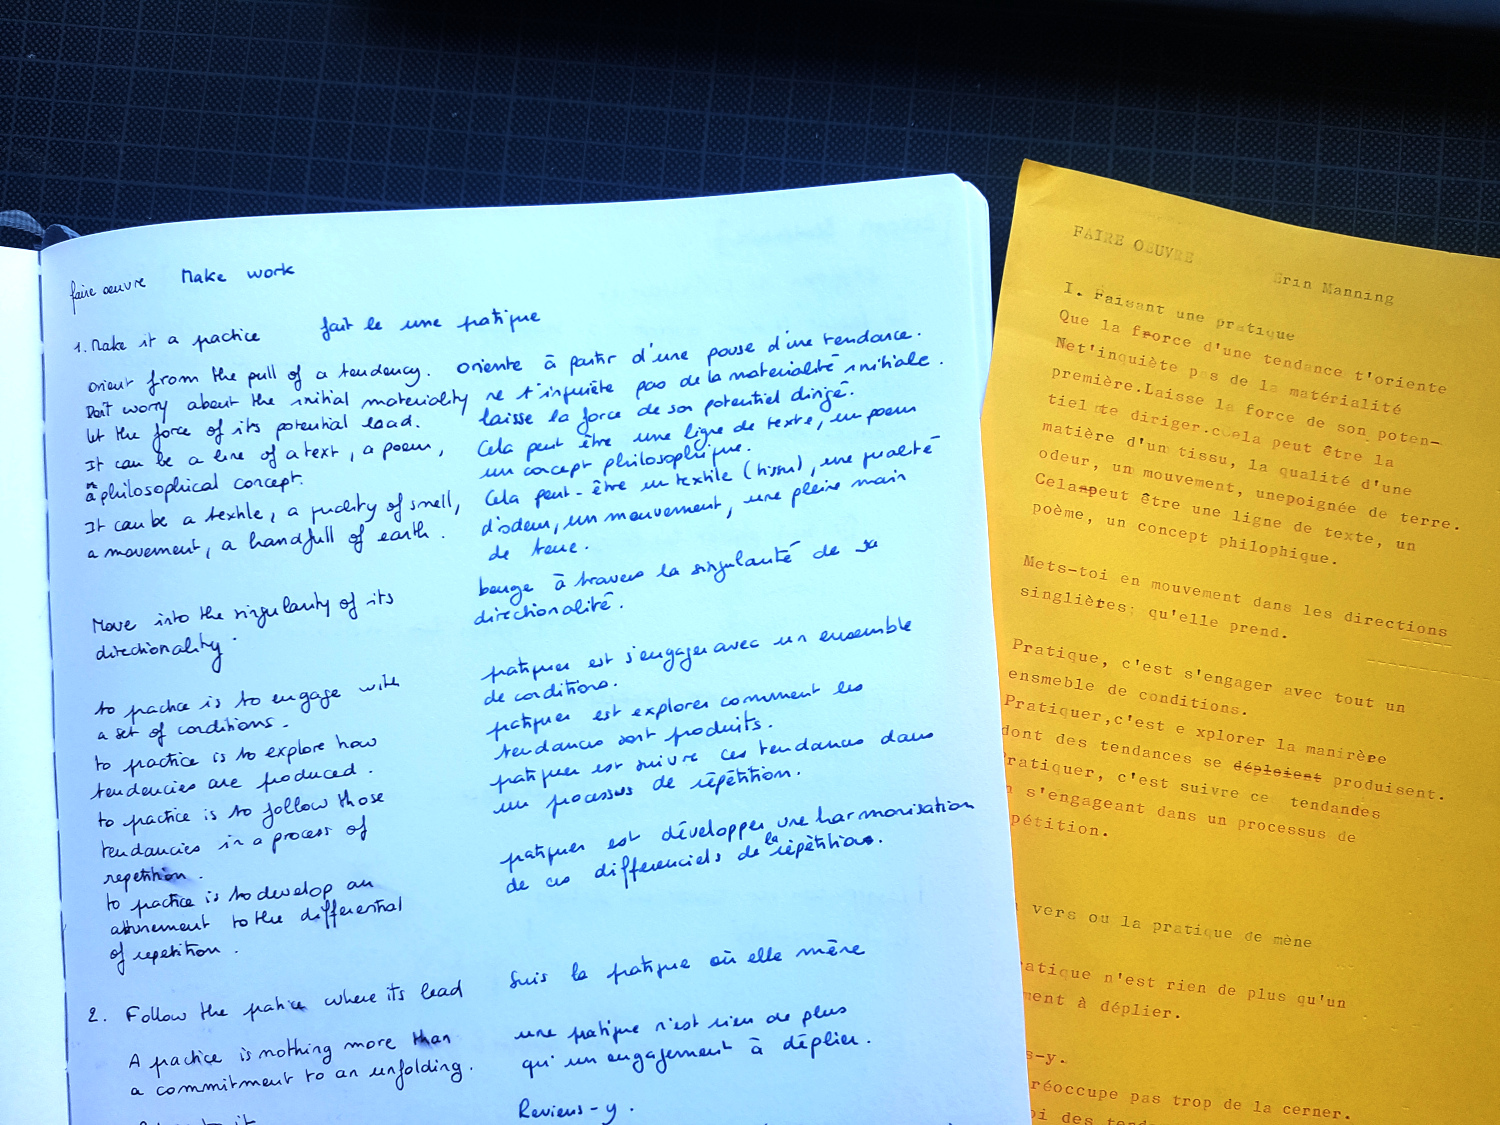 faire oeuvre Make work
1. Make it a practice
orient from the pull of a tendency.
Don't worry about the initial materiality
let the force of its potential lead.
It can be a line of a text, a poem,
a philosophical concept.
It can be a textile, a quality of smell,
a movement, a handfull of earth.
Move into the singularity of its
directionality.
to practice is to engage with
a set of conditions.
to practice is to explore how
tendencies are produced.
to practice is to follow those
tendancies in a process of
repetition.
to practice is to develop an
attunement to the differential
of repetition.
2. Follow the patice where its lead
A practice is nothing more than
a commitment to an unfolding.
fait le une pratique
oriente à partir d'une pouse d'une tendance.
ne t'inquiète pas de la materialité initiale.
laisse la force de son potentiel dirigé.
Cela peut être une ligne de texte, un poem
un concept philosophique.
Cela peut-être un textile (tissu), une qualité
d'odeur, un mouvement, une pleine main
de terre.
bouge à travers la singulanité de sa
directionalité.
pratiquer est s'engager avec un ensemble
de conditions.
pratiquer est explorer comment les
tendances sont produits.
pratiquer est suivre ces tendances dans
un processus de répétition.
pratiquer est développer une harmonisation
de ces differenciels de la répétition.
Suis la pratique où elle mène
une pratique n'est rien de plus
qu'un engagement à déplier.
Reviens-y.
FAIRE OEUVRE
Erin Manning
I. Faisant une pratique
Que la frorce d'une tendance t'oriente
Net'inquiète pas de la matérialité
première.Laisse la force de son poten-
tiel te diriger.ccela peut être la
matière d'un tissu, la qualité d'une
odeur, un mouvement, unepoignée de terre.
Cela peut être une ligne de texte, un
poème, un concept philophique.
Mets-toi en mouvement dans les directions
singlières qu'elle prend.
Pratique, c'est s'engager avec tout un
ensmeble de conditions.
Pratiquer,c'est e xplorer la manirère
dont des tendances se déploient produisent.
Pratiquer, c'est suivre ce tendandes
s'engageant dans un processus de
pétition.
vers ou la pratique de mène
atique n'est rien de plus qu'un
ment à déplier.
s-y.
réoccupe pas trop de la cerner.